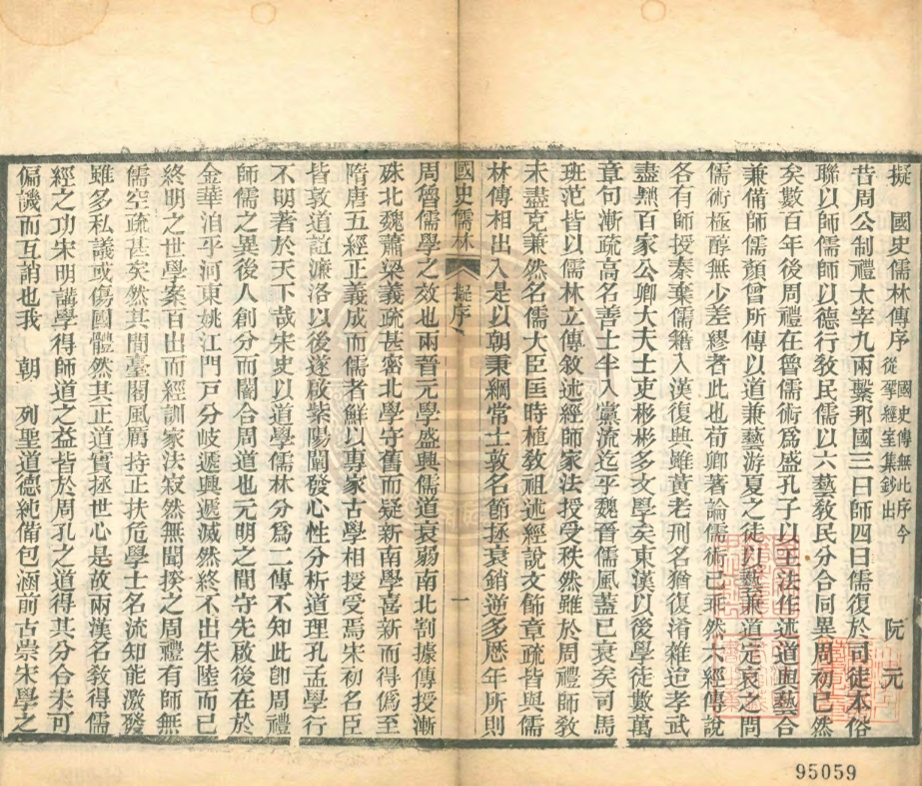 擬 國史儒林傳序 國史傳無此序今 從揅經室集鈔出 阮 元
昔周公制禮太宰九兩繫邦國三曰師四曰儒復於司徒本俗
聯以師儒師以德行敎民儒以六藝敎民分合同異周初已然
矣數百年後周禮在魯儒術爲盛孔子以王法作述道與藝合
兼備師儒顏曾所傳以道兼藝游夏之徒以藝兼道定哀之間
儒術極醇無少差繆者此也荀卿著論儒術已乖然六經傳說
各有師授秦棄儒籍入漢復興雖黃老刑名猶復淆雜迨孝武
盡黜百家公卿大夫士吏彬彬多文學矣東漢以後學徒數萬
章句漸疏高名善士半入黨流迄乎魏晉儒風葢已衰矣司馬
班范皆以儒林立傳敘述經師家法授受秩然雖於周禮師敎
未盡克兼然名儒大臣匡時植敎祖述經說文飾章疏皆與儒
林傳相出入是以朝秉綱常士敦名節拯衰銷逆多歷年所則
國史儒林 擬序 一
周魯儒學之效也兩晉元學盛興儒道衰弱南北割據傳授漸
殊北魏蕭梁義疏甚密北學守舊而疑新南學喜新而得僞至
隋唐五經正義成而儒者鮮以專家古學相授受焉宋初名臣
皆敦道誼濂洛以後遂啟紫陽闡發心性分析道理孔孟學行
不明著於天下哉宋史以道學儒林分爲二傳不知此卽周禮
師儒之異後人創分而闇合周道也元明之間守先啟後在於
金華洎乎河東姚江門戸分岐遞興遞滅然終不出朱陸而已
終明之世學案百出而經訓家法寂然無聞揆之周禮有師無
儒空疏甚矣然其間臺閣風厲持正扶危學士名流知能激發
雖多私議或傷國體然其正道實拯世心是故兩漢名敎得儒
經之功宋明講學得師道之益皆於周孔之道得其分合未可
偏譏而互誚也我 朝 列聖道德純備包涵前古崇宋學之
95059